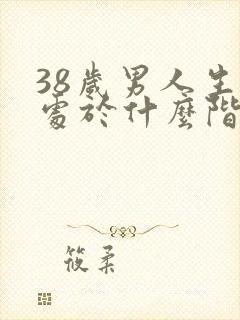 38歲男人生
處於什麼階
筱柔